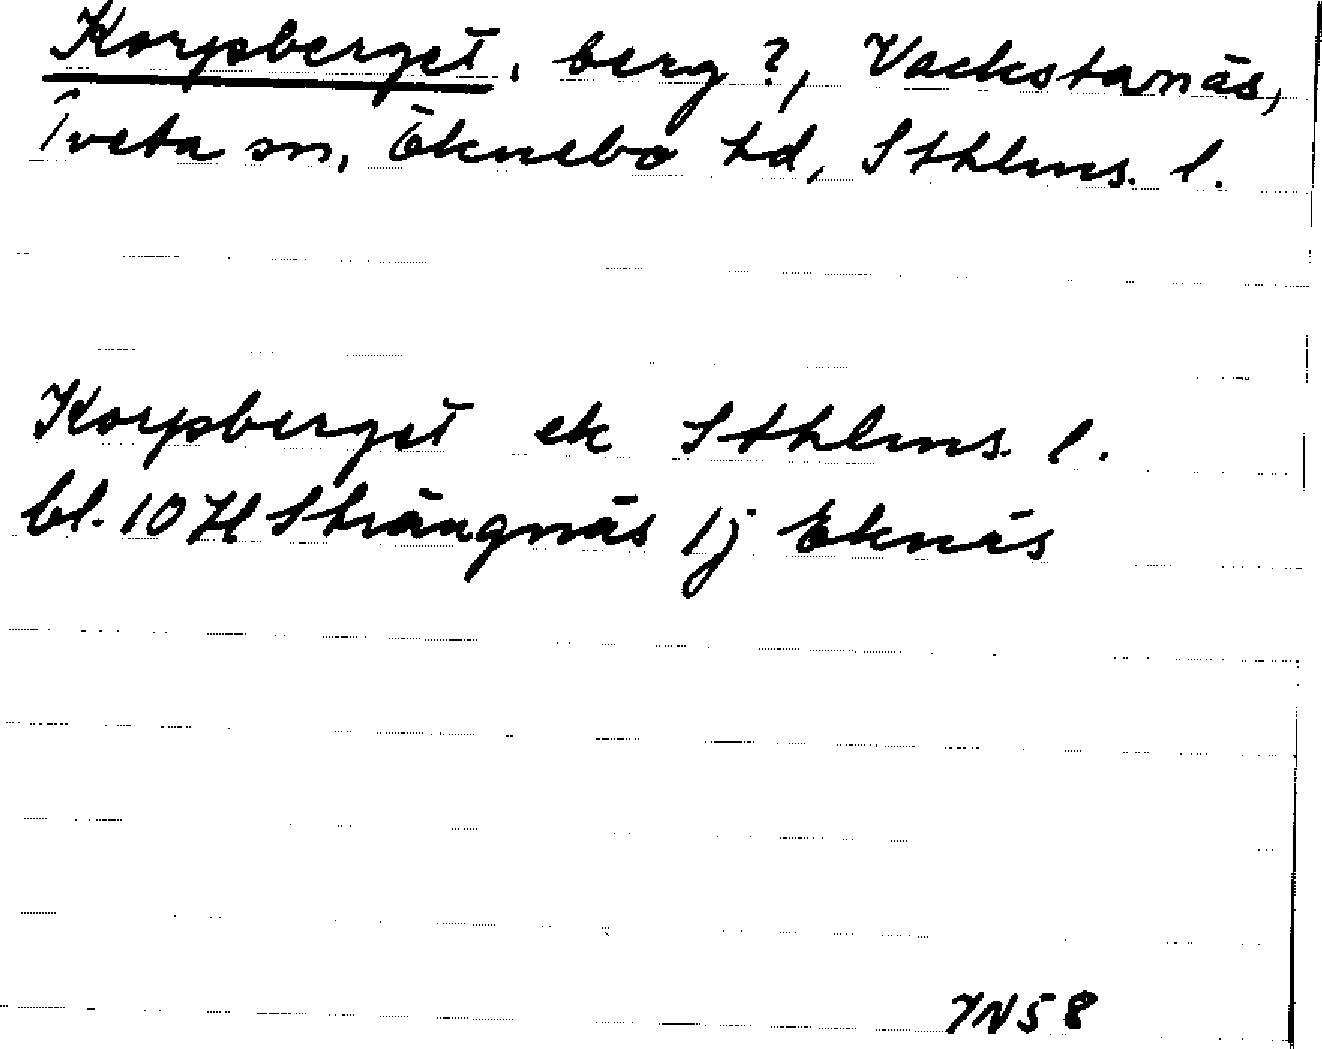 Korpberget, berg?, Vackstanäs,
Tveta sn, Öknebo hd, Sthlms. l.
Korpberget ek Sthlms. l.
bl. 10 H Strängnäs 1j Eknäs
7N58